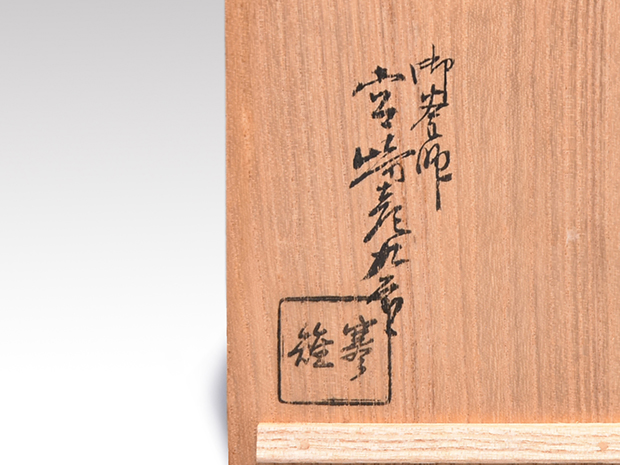 御釜師
宮崎彦九郎
寒雉